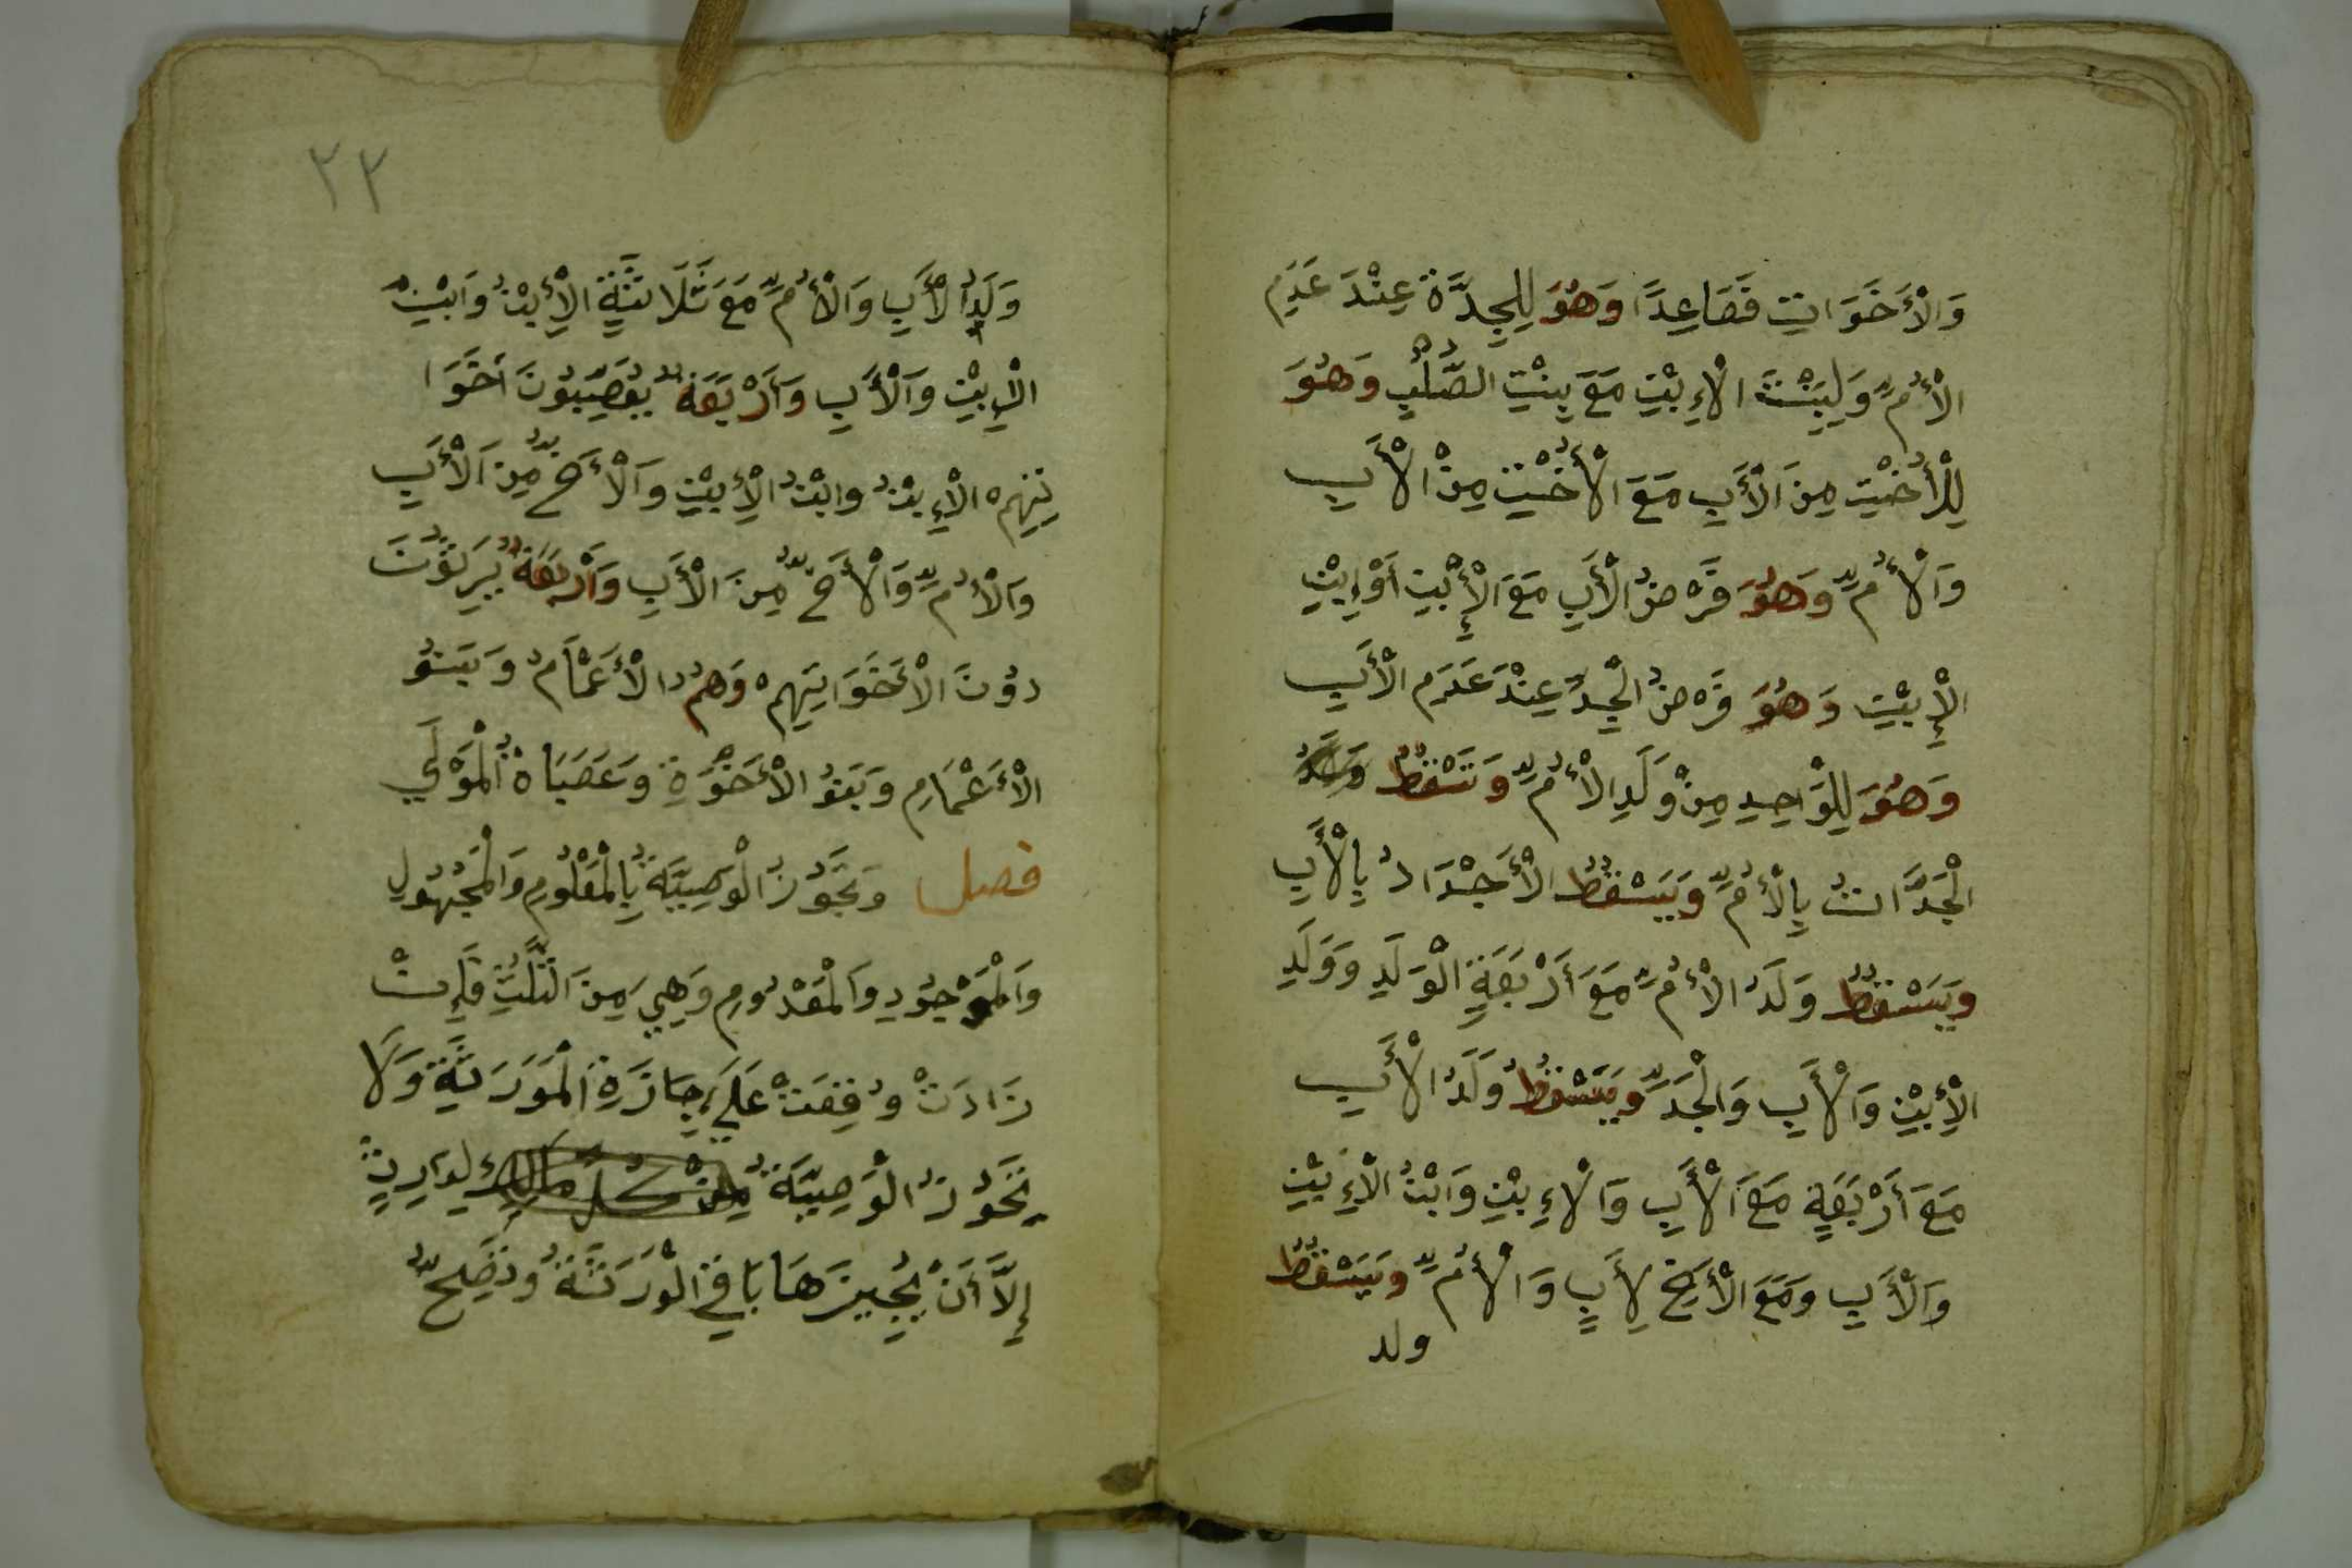 وَالْأَخَوَاتِ فَصَاعِدًا وَهُوَ لِلْجَدَّةِ عِنْدَ عَدَمِ
الْأُمِّ وَلِبِنْتِ الْإِبْنِ مَعَ بِنْتِ الصُّلْبِ وَهُوَ
لِلْأُخْتِ مِنَ الْأَبِ مَعَ الْأُخْتِ مِنْ الْأَبِ
وَالْأُمِّ وَهُوَ فَرْضُ الْأَبِ مَعَ الْإِبْنِ أَوْ إِبْنِ
الْإِبْنِ وَهُوَ فَرْضُ الْجَدِّ عِنْدَ عَدَمِ الْأَبِ
وَهُوَ لِلْوَاحِدِ مِنْ وَلَدِ الْأُمِّ وَتَسْقُطُ
الْجَدَّاتُ بِالْأُمِّ وَيَسْقُطُ الْأَجْدَادُ بِالْأَبِ
وَيَسْقُطُ وَلَدُ الْأُمِّ مَعَ أَرْبَعَةٍ الْوَلَدِ وَوَلَدِ
الْإِبْنِ وَالْأَبِ وَالْجَدِّ وَيَسْقُطُ وَلَدُ الْأَبِ
مَعَ أَرْبَعَةٍ مَعَ الْأَبِ وَالْإِبْنِ وَابْنُ الْإِبْنِ
وَالْأَبِ وَمَعَ الْأَخِ لِأَبٍ وَالْأُمِّ وَيَسْقُطُ
ولد
٢٢
وَلَدُ الْأَبِ وَالْأُمِّ مَعَ ثَلَاثَةٍ الْإِبْنُ وَابْنِ
الْإِبْنِ وَالْأَبِ وَأَرْبَعَةٌ يُعَصِّبُونَ أَخَوَا
تِهِمْ الْإِبْنُ وابْنُ الْإِبْنِ وَالْأَخُّ مِنَ الْأَبِ
وَالْأُمِّ وَالْأَخُّ مِنَ الْأَبِ وَأَرْبَعَةٌ يَرِثُونَ
دُوْنَ الْأَخَوَاتِهِمْ وَهُمُ الْأَعْمَامُ وَبَنُو
الْأَعْمَامِ وَبَنُو الْأَخَوَةِ وَعَصَبَاةُ الْمَوْلَي
فصل وَتَجُوزُ الْوَصِيَّةُ بِالْمَعْلُومِ وَالْمَجْهُولِ
وَالْمَوْجُودِ وَالْمَعْدُومِ وَهِيَ مِنَ الثُّلُثِ فَإِنْ
زَادَتْ وُقِفَتْ عَلَي إِجَازَةِ الْمَوَرَثَةِ وَلَا
تَجُوزُ الْوَصِيَّةُ مِنْ كُلِّ مَالِكٍ لِوَارِثٍ
إِلَّا أَنْ يُجِيزَهَا بَاقِي الْوَرَثَةُ وَتَصِحُّ